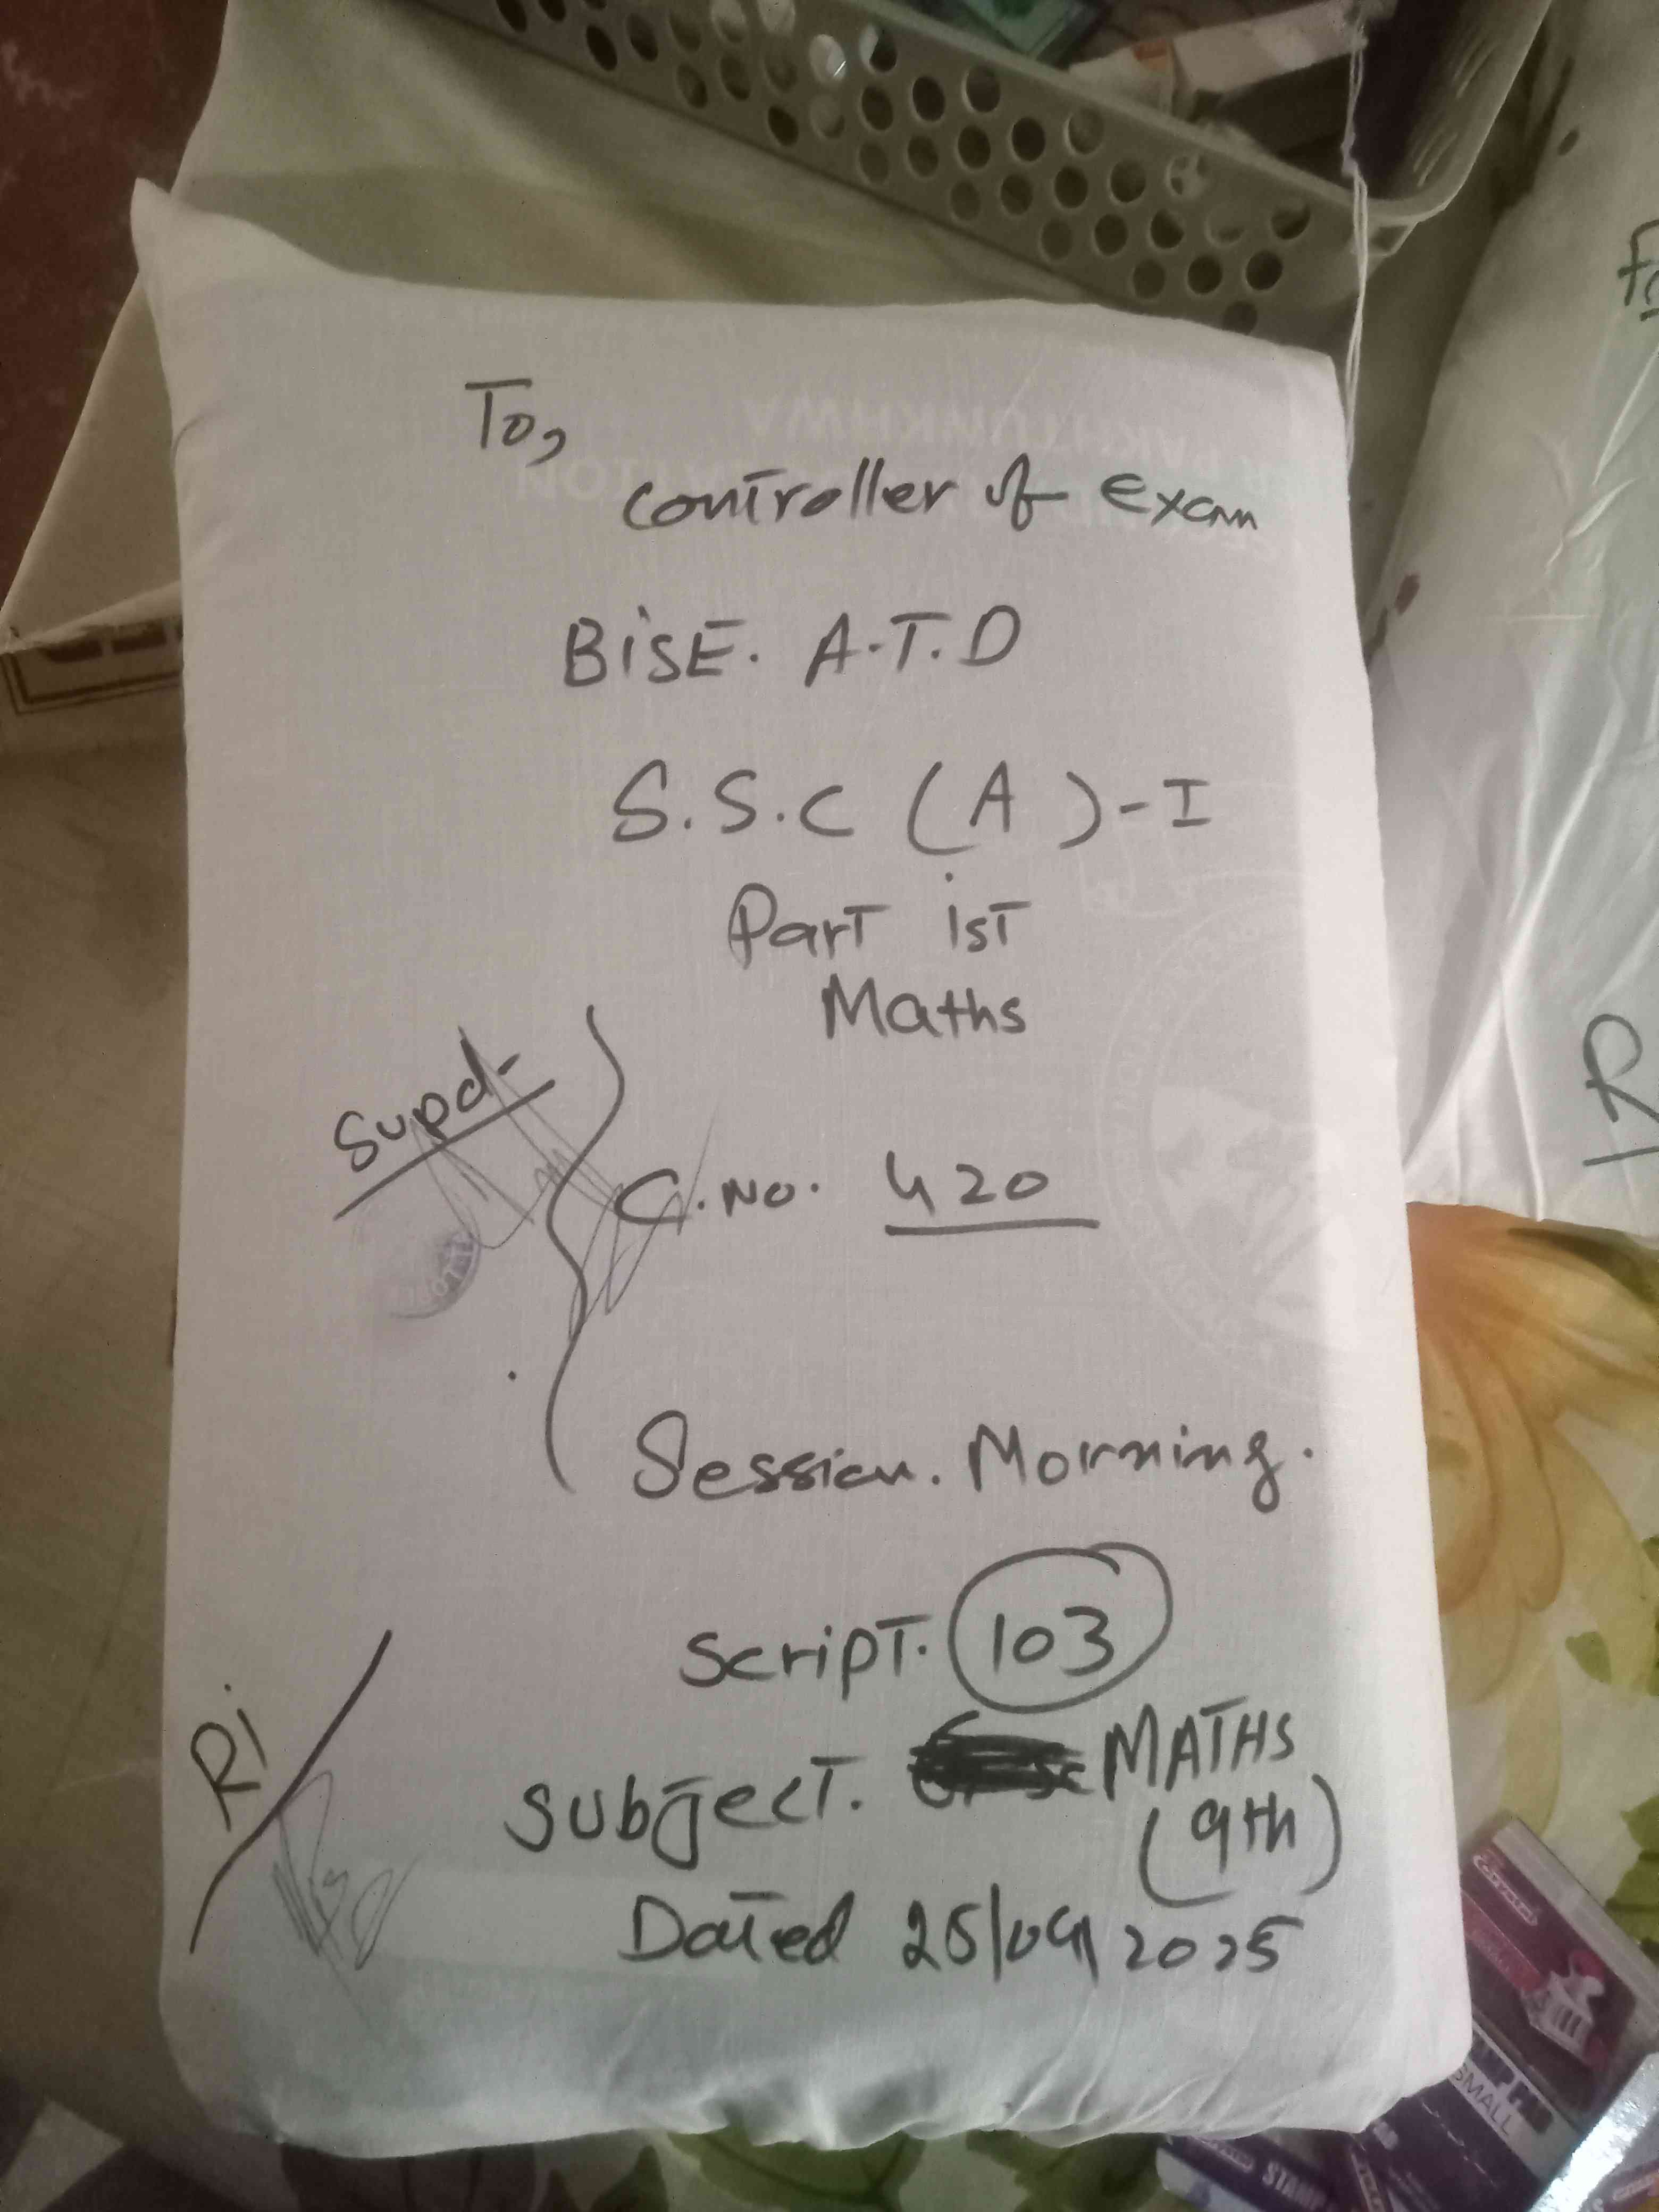 To,
controller of Exam
BiSE. A.T.D
S.S.C (A)-I
Part ist
Maths
Supd-
C.No. 420
Session. Morning.
Script. 103
Ri
Subject. MATHS
(9th)
Dated 25/04/2025
SMALL
STAMP